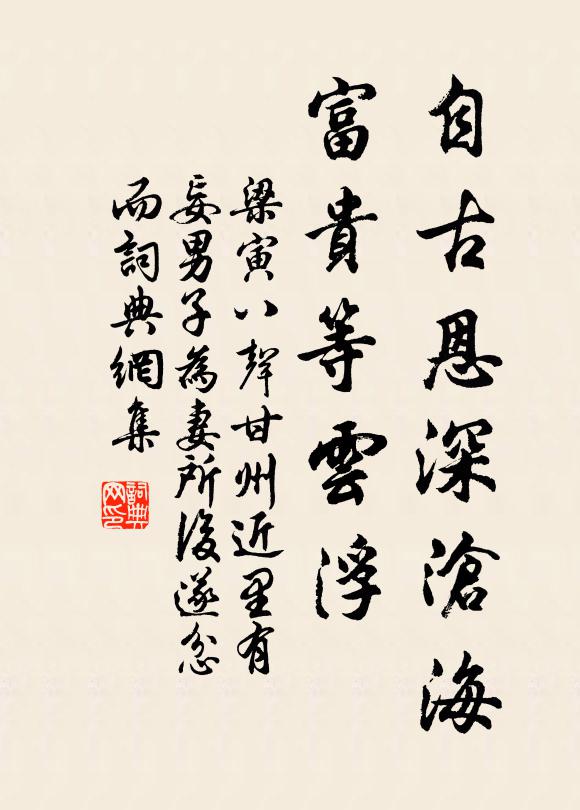 自古恩深滄海
富貴等雲浮
梁寅八聲甘州近里有
妄男子為妻所後遂忿
而詞典網集
詞典
网印